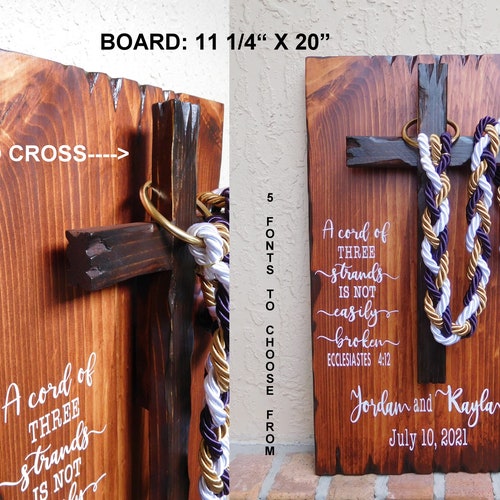 BOARD: 11 1/4“ X 20”
CROSS---->
A cord of
THREE
strands
IS NOT
5 FONTS TO CHOOSE FROM
A cord of
THREE
strands
IS NOT
easily
broken
ECCLESIASTES 4:12
Jordan and Kayla
July 10, 2021